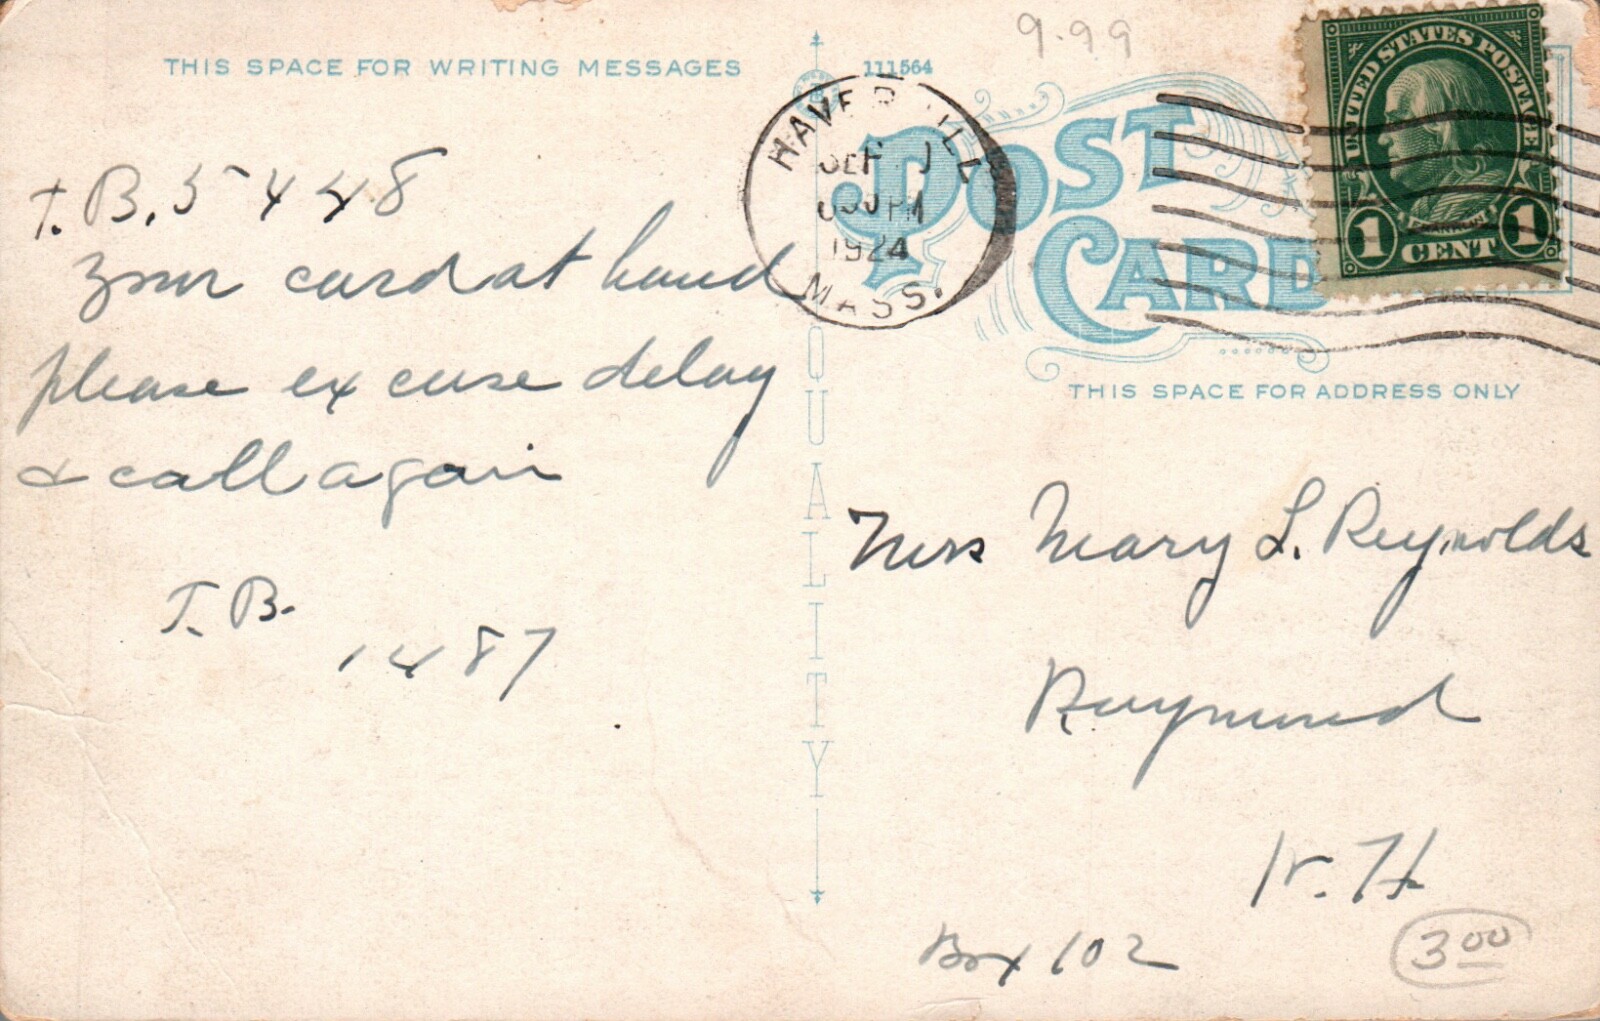 9.99
THIS SPACE FOR WRITING MESSAGES
111564
POST
CARD
HAVERHILL
SEP
30 PM
1924
MASS.
UNITED STATES POSTAGE
FRANKLIN
1 CENT 1
THIS SPACE FOR ADDRESS ONLY
QUALITY
T. B. 5448
Your card at hand
please excuse delay
& call again
T. B.
1487
Mrs Mary L. Reynolds
Raymond
N. H
Box 102
3 00